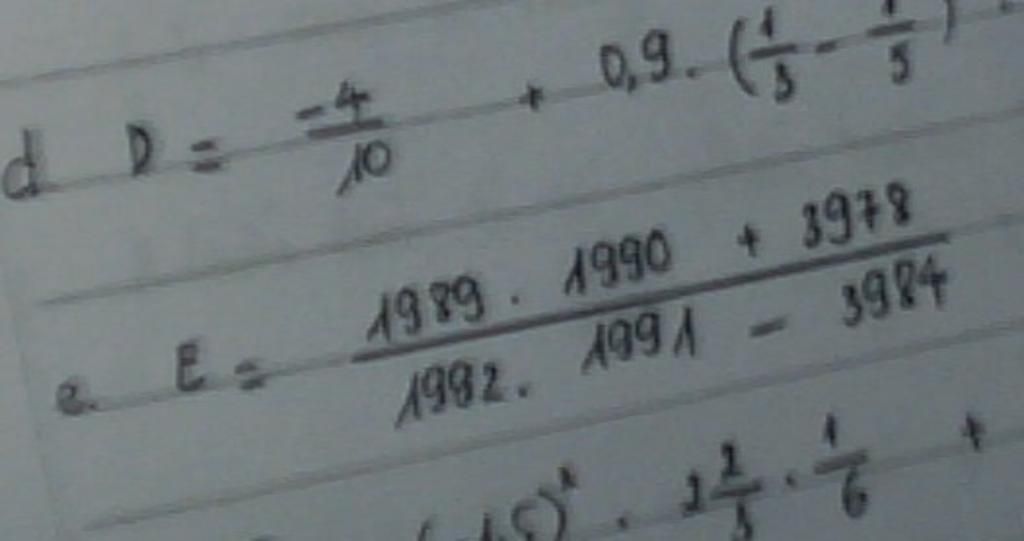 d D = -4/10 + 0,9 . (1/3 - 1/5)
e. E = 1989 . 1990 + 3978 / 1992 . 1991 - 3984
)² . 2/3 . 1/6 +